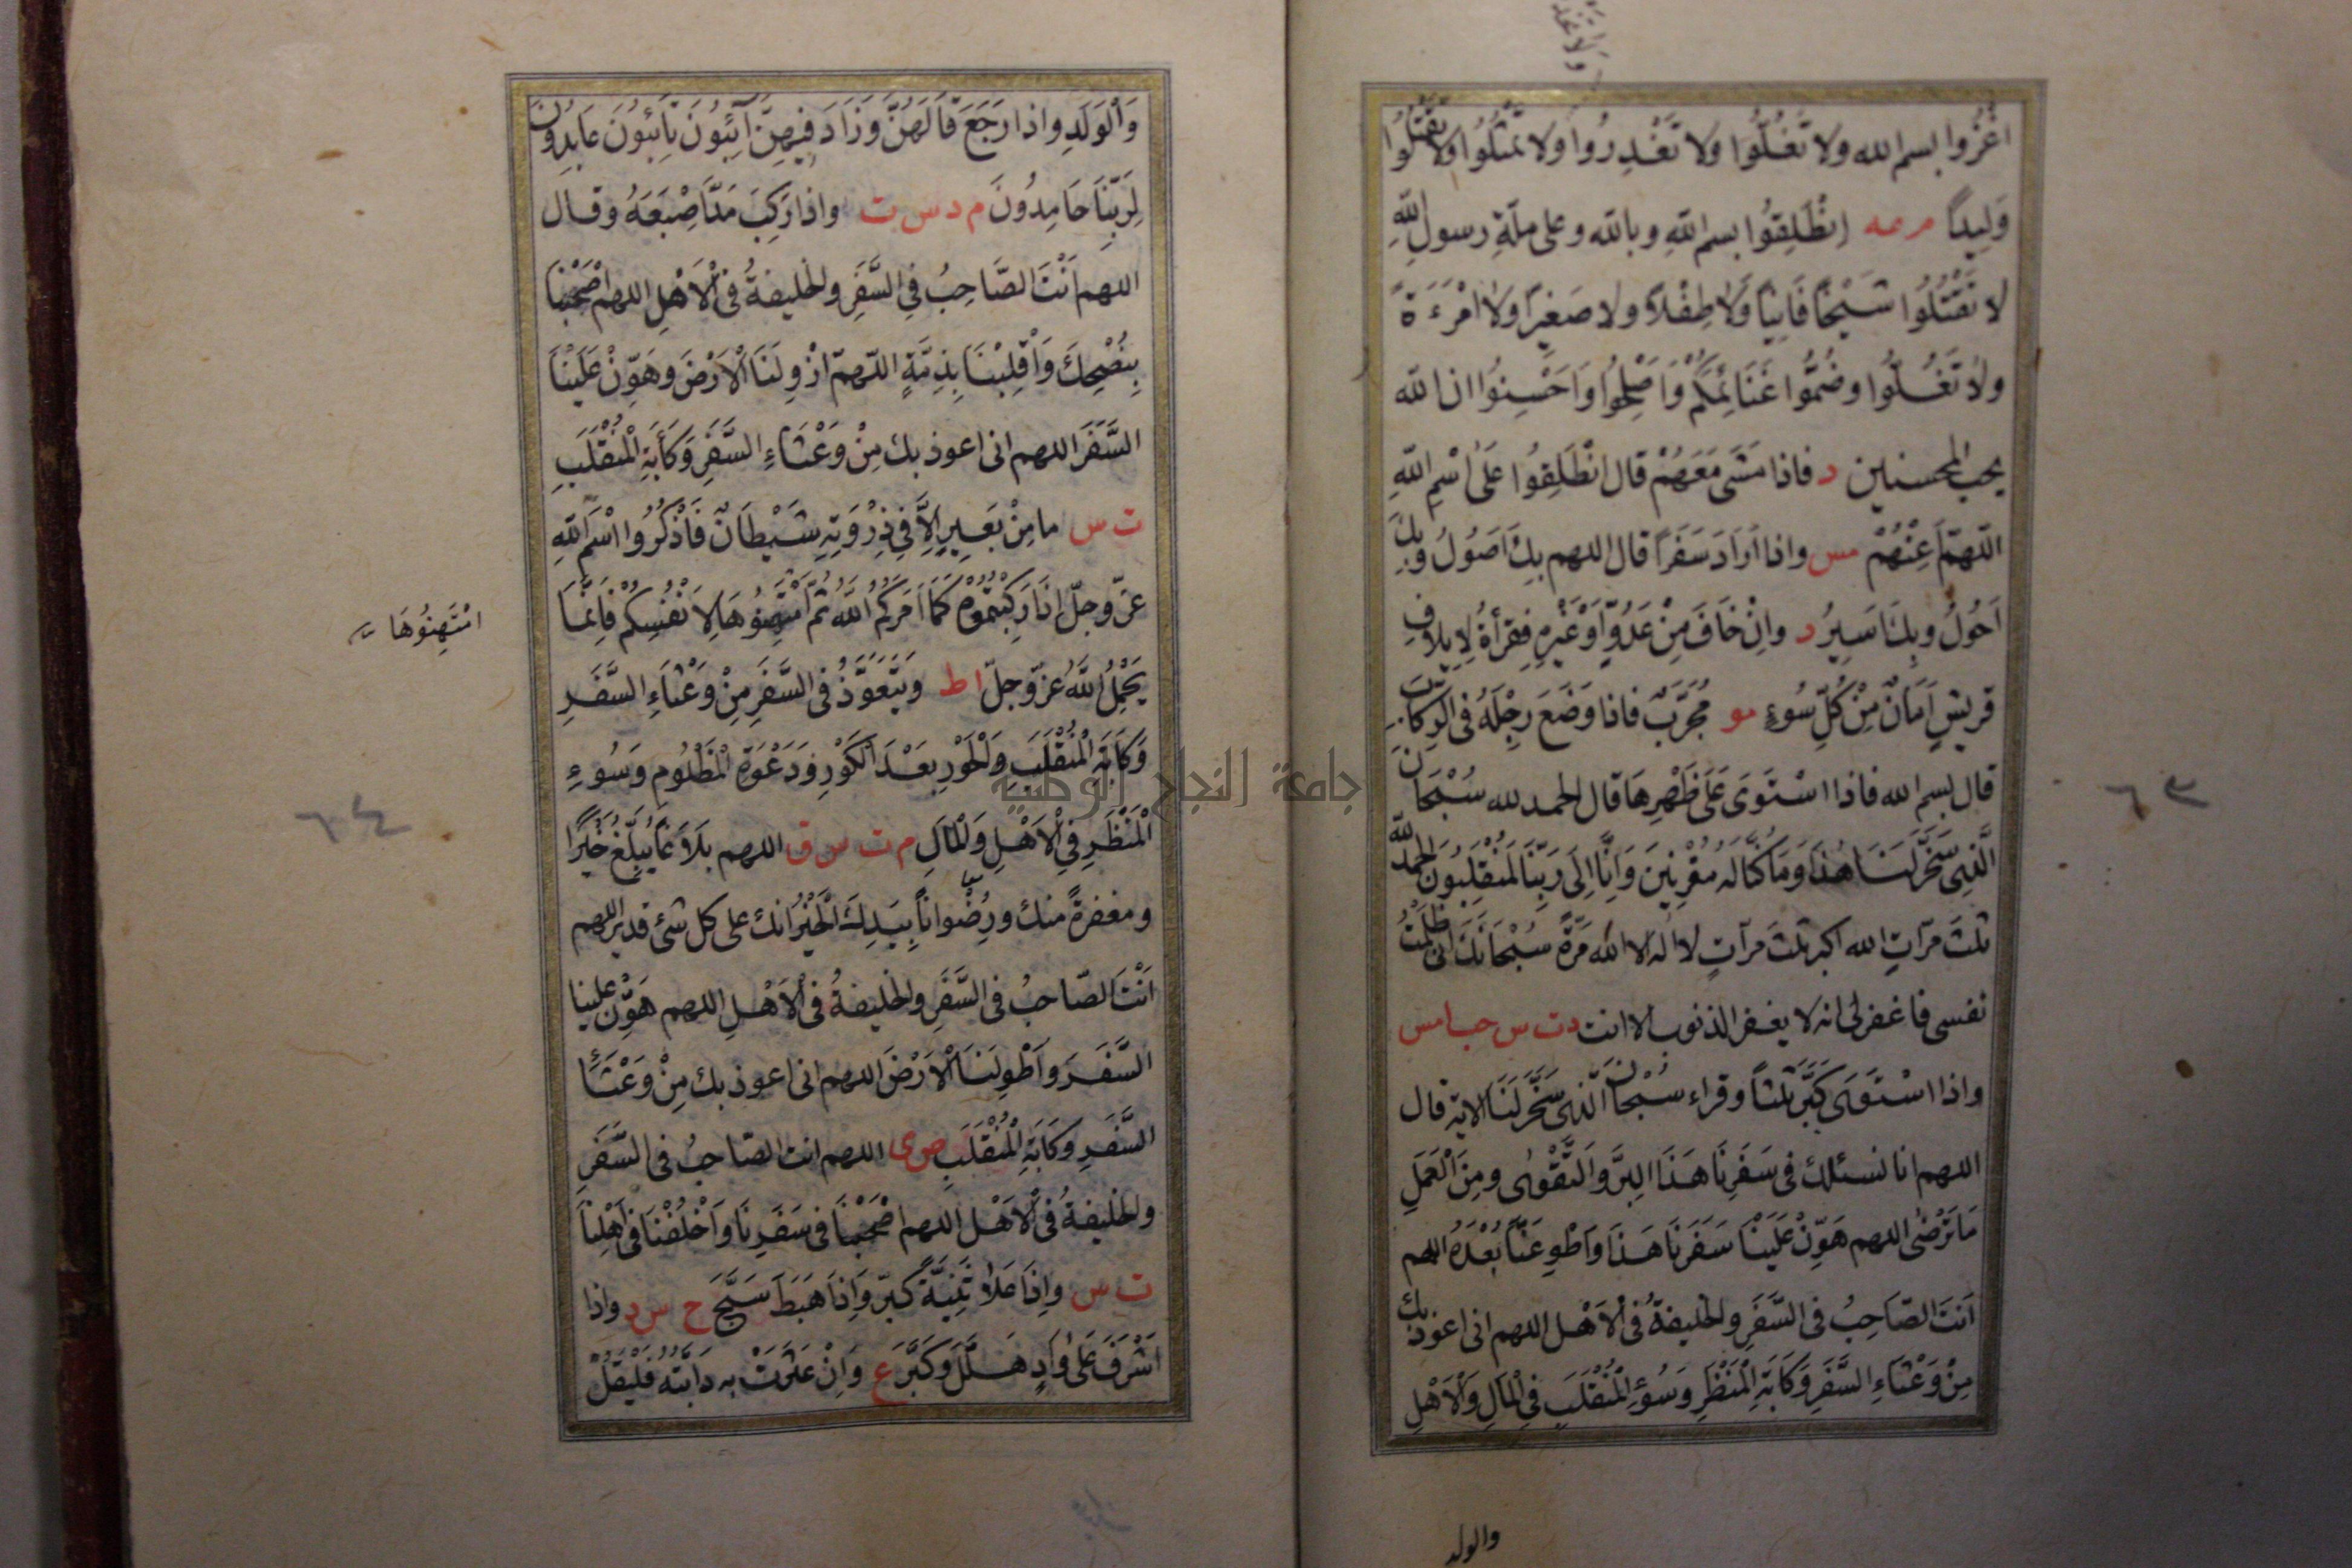 اغْزُوا بسم الله ولا تَغُلُّوا ولا تَغْدِرُوا ولا تَمْثُلُوا ولا تَقْتُلُوا
وَلِيدًا م عه اِنْطَلِقُوا بسم اللهِ وبالله وعلى ملّةِ رسول اللهِ
لا تَقْتُلُوا شَيْخًا فَانِيًا وَلا طِفْلاً ولا صَغِيرًا ولا امْرَءَةً
ولا تَغُلُّوا وضُمُّوا غَنَائِمَكُمْ وَاَصْلِحُوا وَاَحْسِنُوا ان الله
يحب المحسنين د فاذا مَشَى مَعَهُمْ قال انْطَلِقُوا عَلَى اسْمِ اللهِ
اللّهمّ اَعِنْهُمْ مس واذا اَرَادَ سَفَرًا قال اللهم بِكَ اَصُولُ وبِكَ
اَحُولُ وبِكَ اَسِيرُ د وانْ خَافَ مِنْ عَدُوٍّ اَوْ غَيْرِهِ فقرأةُ لِاِيلافِ
قريشٍ اَمَانٌ مِنْ كُلِّ سُوءٍ مو مُجَرَّبٌ فاذا وَضَعَ رِجْلَهُ فى الرِّكَابِ
قال بسم الله فاذا اسْتَوَى عَلَى ظَهْرِهَا قال الحمد لله سُبْحَانَ
الَّذِى سَخَّرَ لَنَا هٰذَا وَمَا كُنَّا لَهُ مُقْرِنِينَ وَاِنَّا اِلَى رَبِّنَا لَمُنْقَلِبُونَ الحمد لله
ثلثَ مرّاتٍ الله اكبر ثلثَ مرّاتٍ لا اله الا الله مَرَّةً سُبْحَانَكَ انى ظَلَمْتُ
نفسى فاغفر لى انه لا يغفر الذنوب الا انت د ت س حب ا مس
واذا اسْتَوَى كَبَّرَ ثَلثًا وقراء سُبْحَانَ الَّذِى سَخَّرَ لَنَا الاية قال
اللهم انا نسئلك فى سَفَرِنَا هَذَا البِرَّ وَالتَّقْوٰى ومِنَ الْعَمَلِ
مَا تَرْضٰى اللهم هَوِّنْ عَلَيْنَا سَفَرَنَا هَذَا وَاطْوِ عَنَّا بُعْدَهُ اللهم
اَنْتَ الصَّاحِبُ فى السَّفَرِ والخليفةُ فى الْاَهْلِ اللهم انى اعوذ بك
مِنْ وَعْثَاءِ السَّفَرِ وَكَابَةِ الْمَنْظَرِ وَسُوءِ الْمُنْقَلَبِ فِى الْمَالِ وَالْاَهْلِ
والولد
٦٣
وَالْوَلَدِ واذا رَجَعَ قَالَهُنَّ وَزَادَ فِيهِنَّ آئِبُونَ تَائِبُونَ عَابِدُونَ
لِرَبِّنَا حَامِدُونَ م د س ت واذا رَكِبَ مَدَّ اصْبَعَهُ وقال
اللهم اَنْتَ الصَّاحِبُ فِى السَّفَرِ والخليفةُ فى الْاَهْلِ اللهم اصْحَبْنَا
بِنُصْحِكَ وَاقْلِبْنَا بِذِمَّةٍ اللّهمّ ازْوِ لَنَا الْاَرْضَ وَهَوِّنْ عَلَيْنَا
السَّفَرَ اللهم انى اعوذ بك مِنْ وَعْثَاءِ السَّفَرِ وَكَأبَةِ الْمُنْقَلَبِ
ت س ما مِنْ بَعِيرٍ اِلاَّ فِى ذِرْوَتِهِ شَيْطَانٌ فَاذْكُرُوا اسْمَ اللهِ
عزّ وجلّ اِذَا رَكِبْتُمُوهُ كَمَا اَمَرَكُمُ اللهُ ثُمَّ امْتَهِنُوهَا لِاَنْفُسِكُمْ فَاِنَّمَا
امْتَهِنُوهَا
يَحْمِلُ اللهُ عزّ وجلّ ا ط وَيَتَعَوَّذُ فى السَّفَرِ مِنْ وَعْثَاءِ السَّفَرِ
وَكَابَةِ الْمُنْقَلَبِ وَالْحَوْرِ بَعْدَ الْكَوْرِ وَدَعْوَةِ الْمَظْلُومِ وَسُوءِ
الْمَنْظَرِ فِى الْاَهْلِ وَالْمَالِ م ت س ق اللهم بَلَاغًا يُبَلِّغُ خَيْرًا
ومغفرةً منك ورِضْوانًا بِيَدِكَ الْخَيْرُ انك على كل شئ قدير اللهم
اَنْتَ الصّاحبُ فى السَّفَرِ والخليفةُ فى الْاَهْلِ اللهم هَوِّنْ علينا
السَّفَرَ وَاطْوِ لَنَا الْاَرْضَ اللهم انى اعوذ بك مِنْ وَعْثَاءِ
السَّفَرِ وكَابَةِ الْمُنْقَلَبِ ص ى اللهم انت الصّاحبُ فى السَّفَرِ
والخليفةُ فى الْاَهْلِ اللهم اصْحَبْنَا فى سَفَرِنَا وَاخْلُفْنَا فى اَهْلِنَا
ت س واِذَا عَلَا ثَنِيَّةً كبّر وَاِذَا هَبَطَ سَبَّحَ خ س د واذا
اَشْرَفَ عَلَى وَادٍ هَلَّلَ وَكَبَّرَ ع وَاِنْ عَثَرَتْ به دَابَّتُهُ فَلْيَقُلْ
٦٤
جامعة النجاح الوطنية